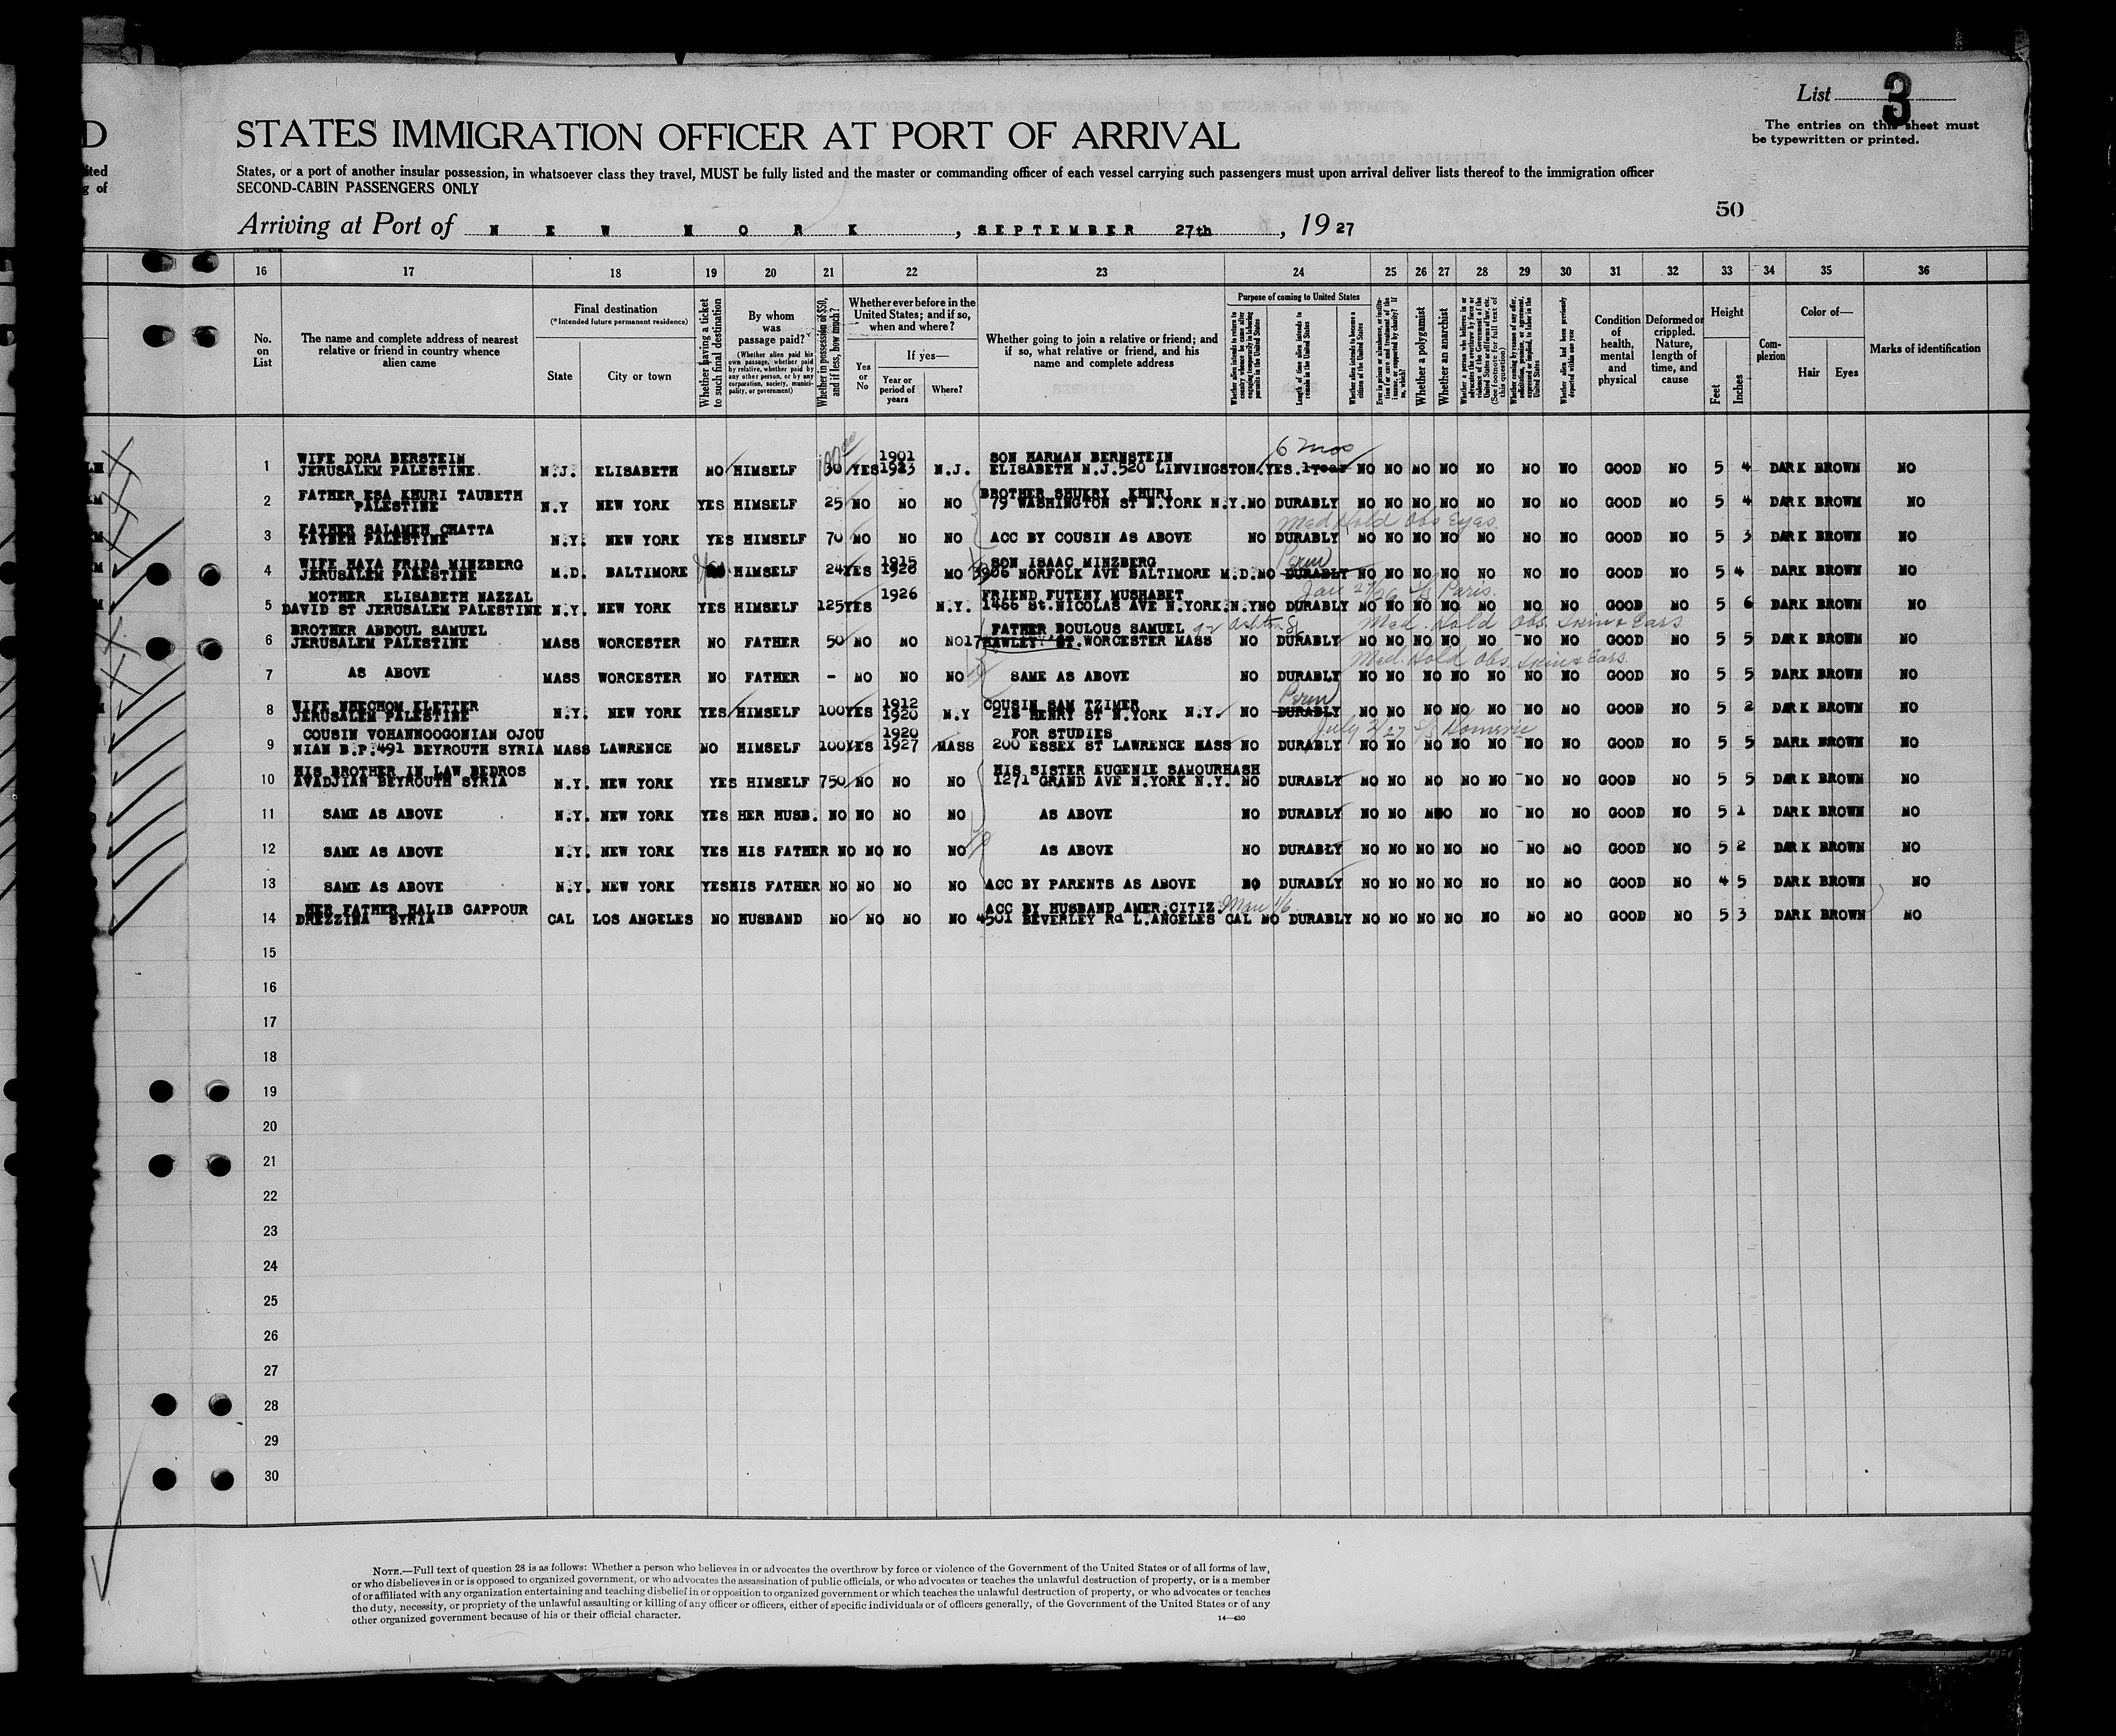 List 3
The entries on this sheet must
be typewritten or printed.
D
STATES IMMIGRATION OFFICER AT PORT OF ARRIVAL
ited
g of
States, or a port of another insular possession, in whatsoever class they travel, MUST be fully listed and the master or commanding officer of each vessel carrying such passengers must upon arrival deliver lists thereof to the immigration officer
SECOND-CABIN PASSENGERS ONLY
50
Arriving at Port of N E W N O R K , SEPTEMBER 27th , 19 27
16 17 18 19 20 21 22 23 24 25 26 27 28 29 30 31 32 33 34 35 36
No. on List
The name and complete address of nearest relative or friend in country whence alien came
Final destination
(*Intended future permanent residence)
State
City or town
Whether having a ticket to such final destination
By whom was passage paid?
(Whether alien paid his own passage, whether paid by relative, whether paid by any other person, or by any corporation, society, municipality, or government)
Whether in possession of $50, and if less, how much?
Whether ever before in the United States; and if so, when and where?
Yes or No
If yes—
Year or period of years
Where?
Whether going to join a relative or friend; and if so, what relative or friend, and his name and complete address
Purpose of coming to United States
Length of time alien intends to remain in the United States
Whether alien intends to become a citizen of the United States
Whether a polygamist
Whether an anarchist
Whether alien had been previously deported within one year
Condition of health, mental and physical
Deformed or crippled. Nature, length of time, and cause
Height
Feet
Inches
Complexion
Color of—
Hair
Eyes
Marks of identification
6 mos
WIFE DORA BERSTEIN 1901 SON HARMAN BERNSTEIN
1 JERUSALEM PALESTINE. N.J. ELISABETH NO HIMSELF 30 YES 1923 N.J. ELISABETH N.J.520 LINVINGSTON. YES. 1year NO NO NO NO NO NO NO GOOD NO 5 4 DARK BROWN NO
FATHER ESA KHURI TAUBETH BROTHER SHUKRY KHURI
2 PALESTINE N.Y NEW YORK YES HIMSELF 25 NO NO NO 79 WASHINGTON ST N.YORK N.Y. NO DURABLY NO NO NO NO NO NO NO GOOD NO 5 4 DARK BROWN NO
FATHER SALAMEH CHATTA Med Hold Obs Eyes.
3 TAIBEH PALESTINE N.Y. NEW YORK YES HIMSELF 70 NO NO NO ACC BY COUSIN AS ABOVE NO DURABLY NO NO NO NO NO NO NO GOOD NO 5 3 DARK BROWN NO
WIFE HAYA FRIDA MINZBERG 1915 SON ISAAC MINZBERG Perm
4 JERUSALEM PALESTINE M.D. BALTIMORE HIMSELF 24 YES 1920 MO 3906 NORFOLK AVE BALTIMORE M.D. NO DURABLY NO NO NO NO NO NO NO GOOD NO 5 4 DARK BROWN NO
MOTHER ELISABETH NAZZAL 1926 FRIEND FUTENY MUSHABET Jan 27/26 S/S Paris.
5 DAVID ST JERUSALEM PALESTINE N.Y. NEW YORK YES HIMSELF 125 YES N.Y. 1466 St.NICOLAS AVE N.YORK.N.Y NO DURABLY NO NO NO NO NO NO NO GOOD NO 5 6 DARK BROWN NO
BROTHER ABDOUL SAMUEL FATHER BOULOUS SAMUEL Med. Hold Obs. Skin & Ears
6 JERUSALEM PALESTINE MASS WORCESTER NO FATHER 50 NO NO NO 17 HAWLEY ST. WORCESTER MASS NO DURABLY NO NO NO NO NO NO NO GOOD NO 5 5 DARK BROWN NO
Med. Hold Obs. Skin & Ears.
7 AS ABOVE MASS WORCESTER NO FATHER - NO NO NO SAME AS ABOVE NO DURABLY NO NO NO NO NO NO NO GOOD NO 5 5 DARK BROWN NO
WIFE NHECHOM KLETTER 1912 COUSIN SAM TZIMER Perm
8 JERUSALEM PALESTINE N.Y. NEW YORK YES HIMSELF 100 YES 1920 N.Y 216 HENRY ST N.YORK N.Y. NO DURABLY NO NO NO NO NO NO NO GOOD NO 5 2 DARK BROWN NO
COUSIN VOHANNOOGONIAN OJOU 1920 FOR STUDIES July 2/27 S/S Homeric
9 NIAN B.P.491 BEYROUTH SYRIA MASS LAWRENCE NO HIMSELF 100 YES 1927 MASS 200 ESSEX ST LAWRENCE MASS NO DURABLY NO NO NO NO NO NO NO GOOD NO 5 5 DARK BROWN NO
HIS BROTHER IN LAW BEDROS HIS SISTER EUGENIE SAMOURHASH
10 AVADJIAN BEYROUTH SYRIA N.Y. NEW YORK YES HIMSELF 750 NO NO NO 1271 GRAND AVE N.YORK N.Y. NO DURABLY NO NO NO NO NO NO NO GOOD NO 5 5 DARK BROWN NO
11 SAME AS ABOVE N.Y. NEW YORK YES HER HUSB. NO NO NO NO AS ABOVE NO DURABLY NO NO NO NO NO NO NO GOOD NO 5 1 DARK BROWN NO
12 SAME AS ABOVE N.Y. NEW YORK YES HIS FATHER NO NO NO NO AS ABOVE NO DURABLY NO NO NO NO NO NO NO GOOD NO 5 2 DARK BROWN NO
13 SAME AS ABOVE N.Y. NEW YORK YES HIS FATHER NO NO NO NO ACC BY PARENTS AS ABOVE NO DURABLY NO NO NO NO NO NO NO GOOD NO 4 5 DARK BROWN NO
HER FATHER HALIB GAPPOUR ACC BY HUSBAND AMER.CITIZ.
14 DREZZINA SYRIA CAL LOS ANGELES NO HUSBAND NO NO NO NO 4501 BEVERLEY Rd L.ANGELES CAL NO DURABLY NO NO NO NO NO NO NO GOOD NO 5 3 DARK BROWN NO
15
16
17
18
19
20
21
22
23
24
25
26
27
28
29
30
NOTE.—Full text of question 28 is as follows: Whether a person who believes in or advocates the overthrow by force or violence of the Government of the United States or of all forms of law,
or who disbelieves in or is opposed to organized government, or who advocates the assassination of public officials, or who advocates or teaches the unlawful destruction of property, or is a member
of or affiliated with any organization entertaining and teaching disbelief in or opposition to organized government or which teaches the unlawful destruction of property, or who advocates or teaches
the duty, necessity, or propriety of the unlawful assaulting or killing of any officer or officers, either of specific individuals or of officers generally, of the Government of the United States or of any
other organized government because of his or their official character.
14—430